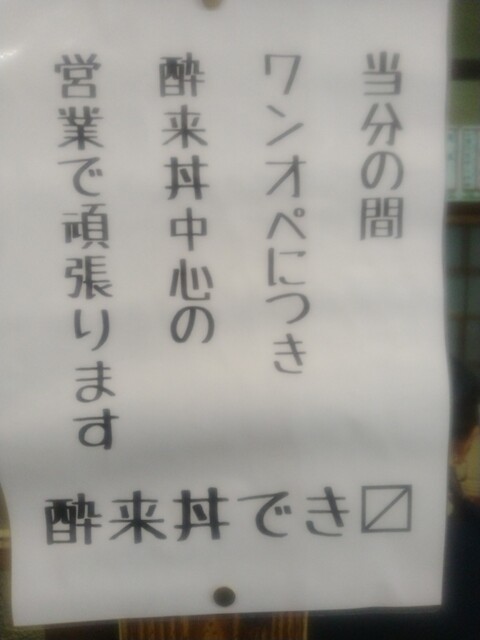 当分の間
ワンオペにつき
酔来丼中心の
営業で頑張ります
酔来丼でき〼